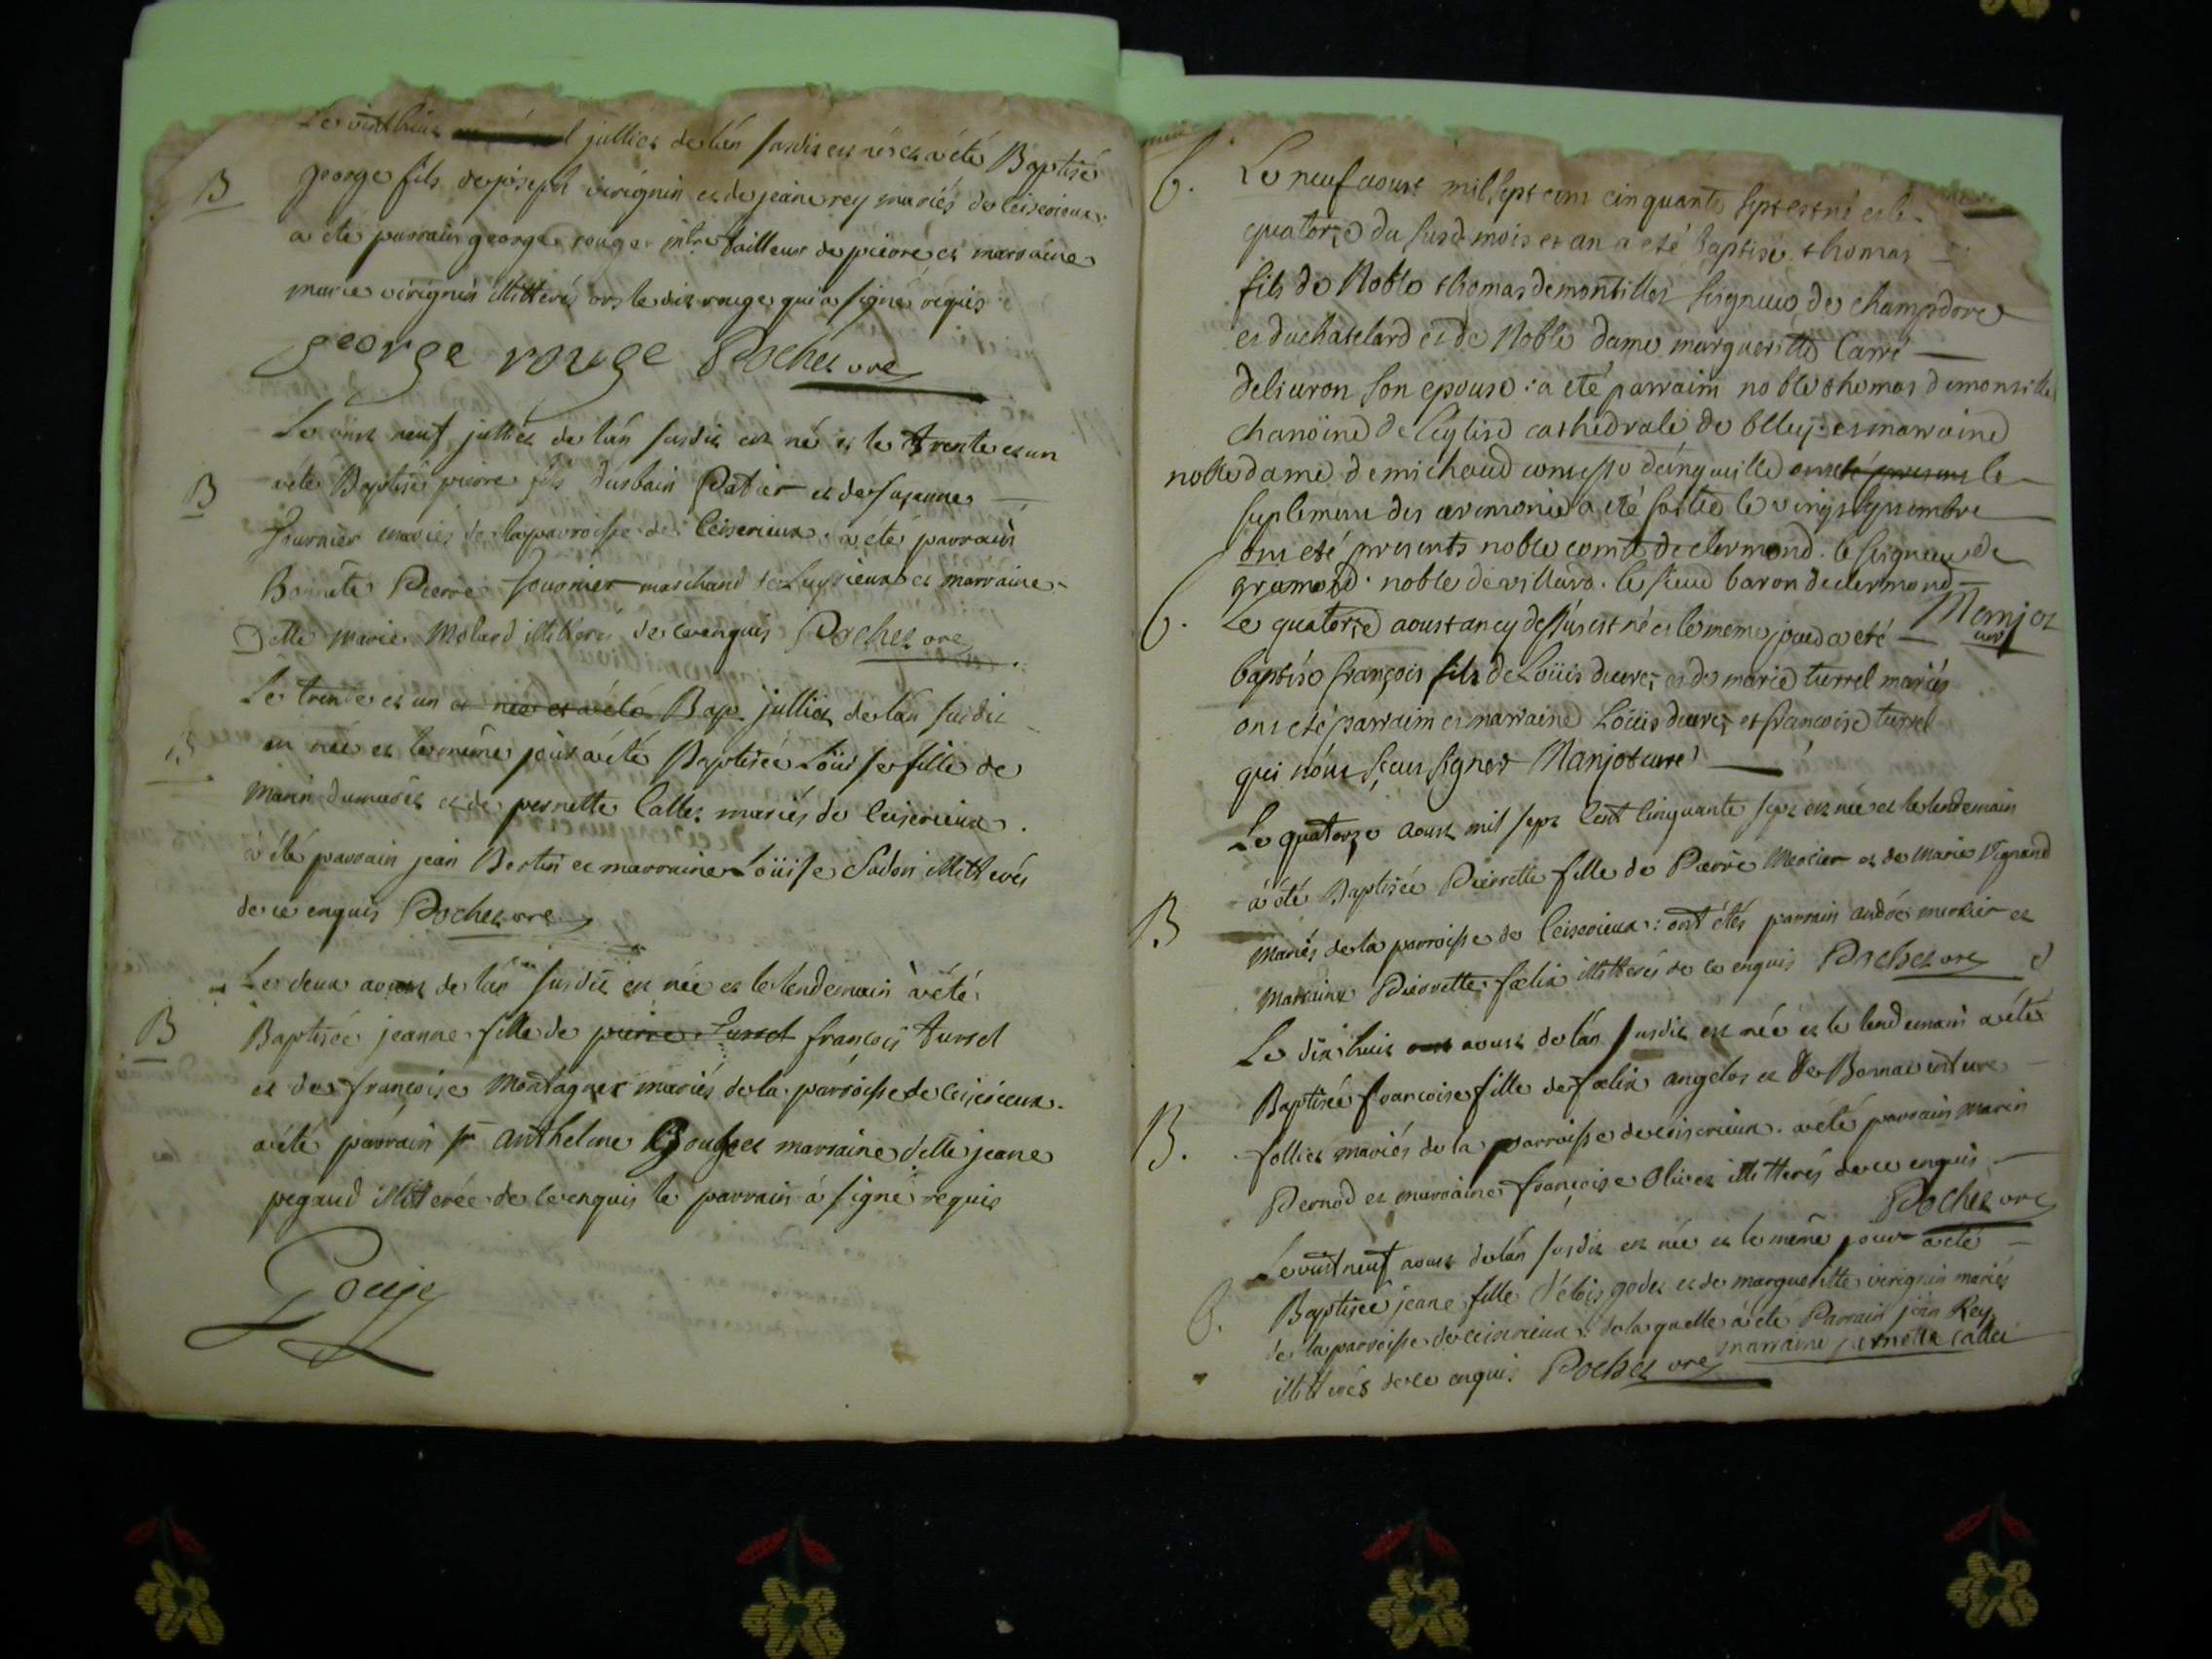 Le vint huit julliet de lán susdit est né et a été Baptisé
B
george fils de joseph virignin et de jeane rey mariés de Ceiserieux
a été parrain george rouge mtre tailleur de pierre et marraine
marie virignin illitterés ors le dit rouge qui a signé requis
george rouge Pochet vre
Le vint neuf julliet de lán susdit est né et le trente et un
B
a été Baptisé pierre fils d'urbain Patier et de susanne
fournier mariés de la parroisse de Ceiserieux. a été parrain
honnête Pierre fournier marchand de Luyrieux et marraine
Delle Marie Molard illitterés de ce enquis Pochet vre
Le trente et un et née et a été Bap. julliet de lán susdit
B
est née et le même jour a été Baptisée Loüise fille de
Marin dumarêt et de pernette Callet mariés de Ceiserieux.
a été parrain jean Bertin et marraine Loüise Sadon illitterés
de ce enquis Pochet vre
Le deux aoust de lán susdit est née et le lendemain a été
B
Baptisée jeanne fille de pierre Turrel françois turrel
et de françoise Montagner mariés de la parroisse de ceiserieux.
a été parrain sr anthelme Gouge et marraine delle jeane
pegaud illitterée de ce enquis le parrain a signé requis
Gouge
B.
Le neuf aoust mil sept cens cinquante sept est né et le
quatorze du susd. mois et an a eté baptisé thomas
fils de Noble thomas de montillet seigneur de champdore
et du chatelard et de Noble dame margueritte Carré
deliuron son epouse: a eté parraim noble thomas de montillet
chanoine de l'eglise cathedrale de Belley: et marraine
noble dame de michaud comtesse d'anguille ont été presens le
suplement des ceremonies a eté fait le vingt septembre
ont eté presents noble comte de clermond. le seigneur de
gramond. noble de villard. le sieur baron de clermond
Manjot
curé
B.
Le quatorze aoust an cy dessus est né et le meme jour a eté
baptisé françois fils de Loüis ducret et de marie turrel mariés
ont eté parraim et marraine Loüis ducret et francoise turrel
qui n'ont sçeu signer Manjot curé
Le quatorze aoust mil sept Cent Cinquante sept est née et le lendemain
B
a été Baptisée Pierrette fille de Pierre Mercier et de Marie Vignand
Mariés de la parroisse de Ceiserieux: ont étés parrain andré mercier et
Marraine Pierrette fœlix illitterés de ce enquis Pochet vre
Le dix huit aoust de lán susdit est née et le lendemain a été
Baptisée francoise fille de fœlix angelot et de Bonnaventure
B.
folliet mariés de la parroisse de ceiserieux. a été parrain Marin
Pernod et marraine françoise Olivet illitterés de ce enquis
Pochet vre
Le vint neuf aoust de lán susdit est née et le même jour a été
B.
Baptisée jeane fille d'élois godet et de marguerite virignin mariés
de la parroisse de ceiserieux: de laquelle a été Parrain jean Rey
marraine pernette callet
illitterés de ce enquis Pochet vre